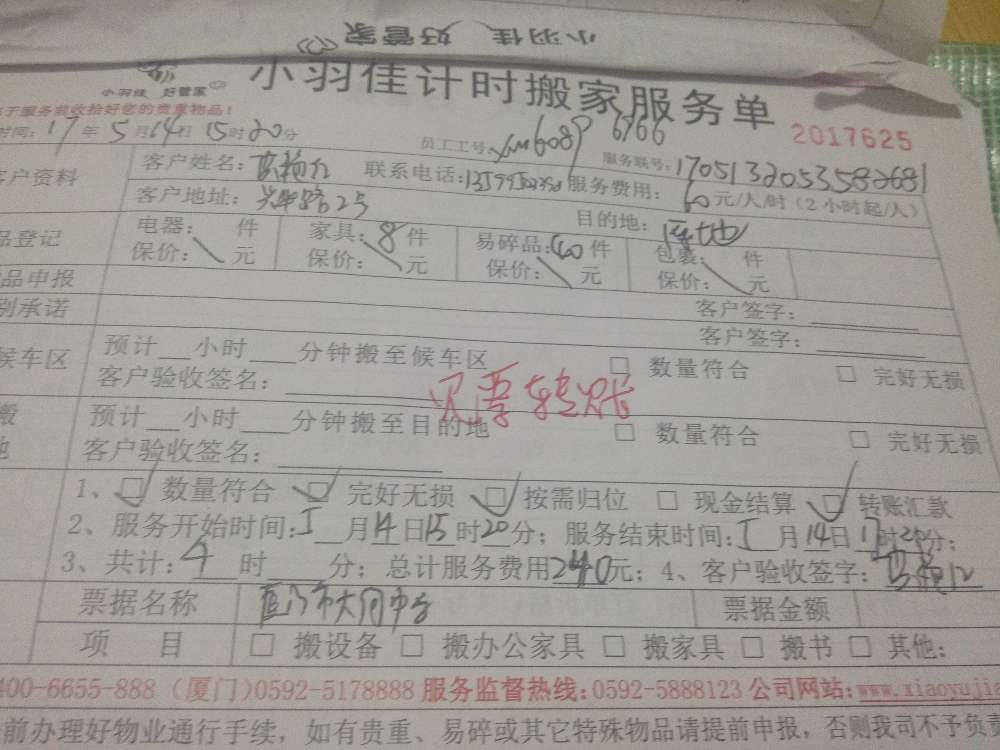 小羽佳 好管家
小羽佳 好管家
小羽佳计时搬家服务单
于服务前收拾好您的贵重物品!
2017625
时间: 17年 5月 14日 15时 20分 员工工号: 6089 6766 服务联号: 1705132053582681
客户资料 客户姓名: 联系电话: 服务费用: 60元/人/时(2小时起/人)
客户地址: 25 目的地:
品登记 电器: 件 家具: 8件 易碎品: 件 包裹: 件
保价: 元 保价: 元 保价: 元 保价: 元
品申报 客户签字:
别承诺 客户签字:
候车区 预计 小时 分钟搬至候车区 □ 数量符合 □ 完好无损
客户验收签名:
只要转账
搬 预计 小时 分钟搬至目的地 □ 数量符合 □ 完好无损
地 客户验收签名:
1、☑ 数量符合 ☑ 完好无损 ☑ 按需归位 □ 现金结算 ☑ 转账汇款
2、服务开始时间: 5月14日15时20分; 服务结束时间: 5月14日17时20分;
3、共计: 4时 分; 总计服务费用240元; 4、客户验收签字:
票据名称 厦门市大同中学 票据金额
项 目 □ 搬设备 □ 搬办公家具 □ 搬家具 □ 搬书 □ 其他:
400-6655-888 (厦门)0592-5178888 服务监督热线:0592-5888123 公司网站:www.xiaoyujia
前办理好物业通行手续,如有贵重、易碎或其它特殊物品请提前申报,否则我司不予负责